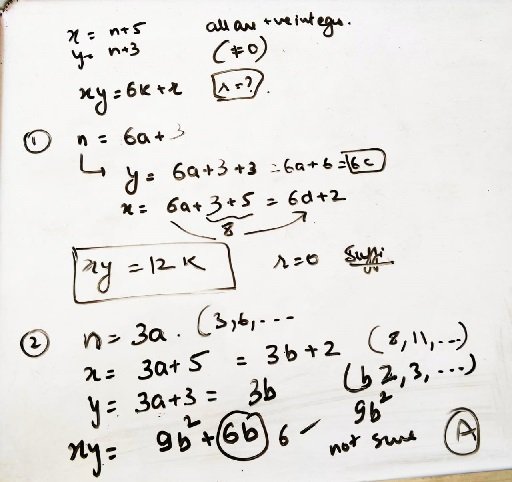 x = n+5 all are +ve integs.
y = n+3 (≠0)
xy = 6k+r r=?
① n = 6a+3
↳ y = 6a+3+3 = 6a+6 = 6c
x = 6a+3+5 = 6d+2
8
xy = 12k r=0 Suffi
② n = 3a. (3,6,...
x = 3a+5 = 3b+2 (8,11,...)
y = 3a+3 = 3b (b 2,3,...)
xy = 9b² + 6b 6 – 9b²
not sure A